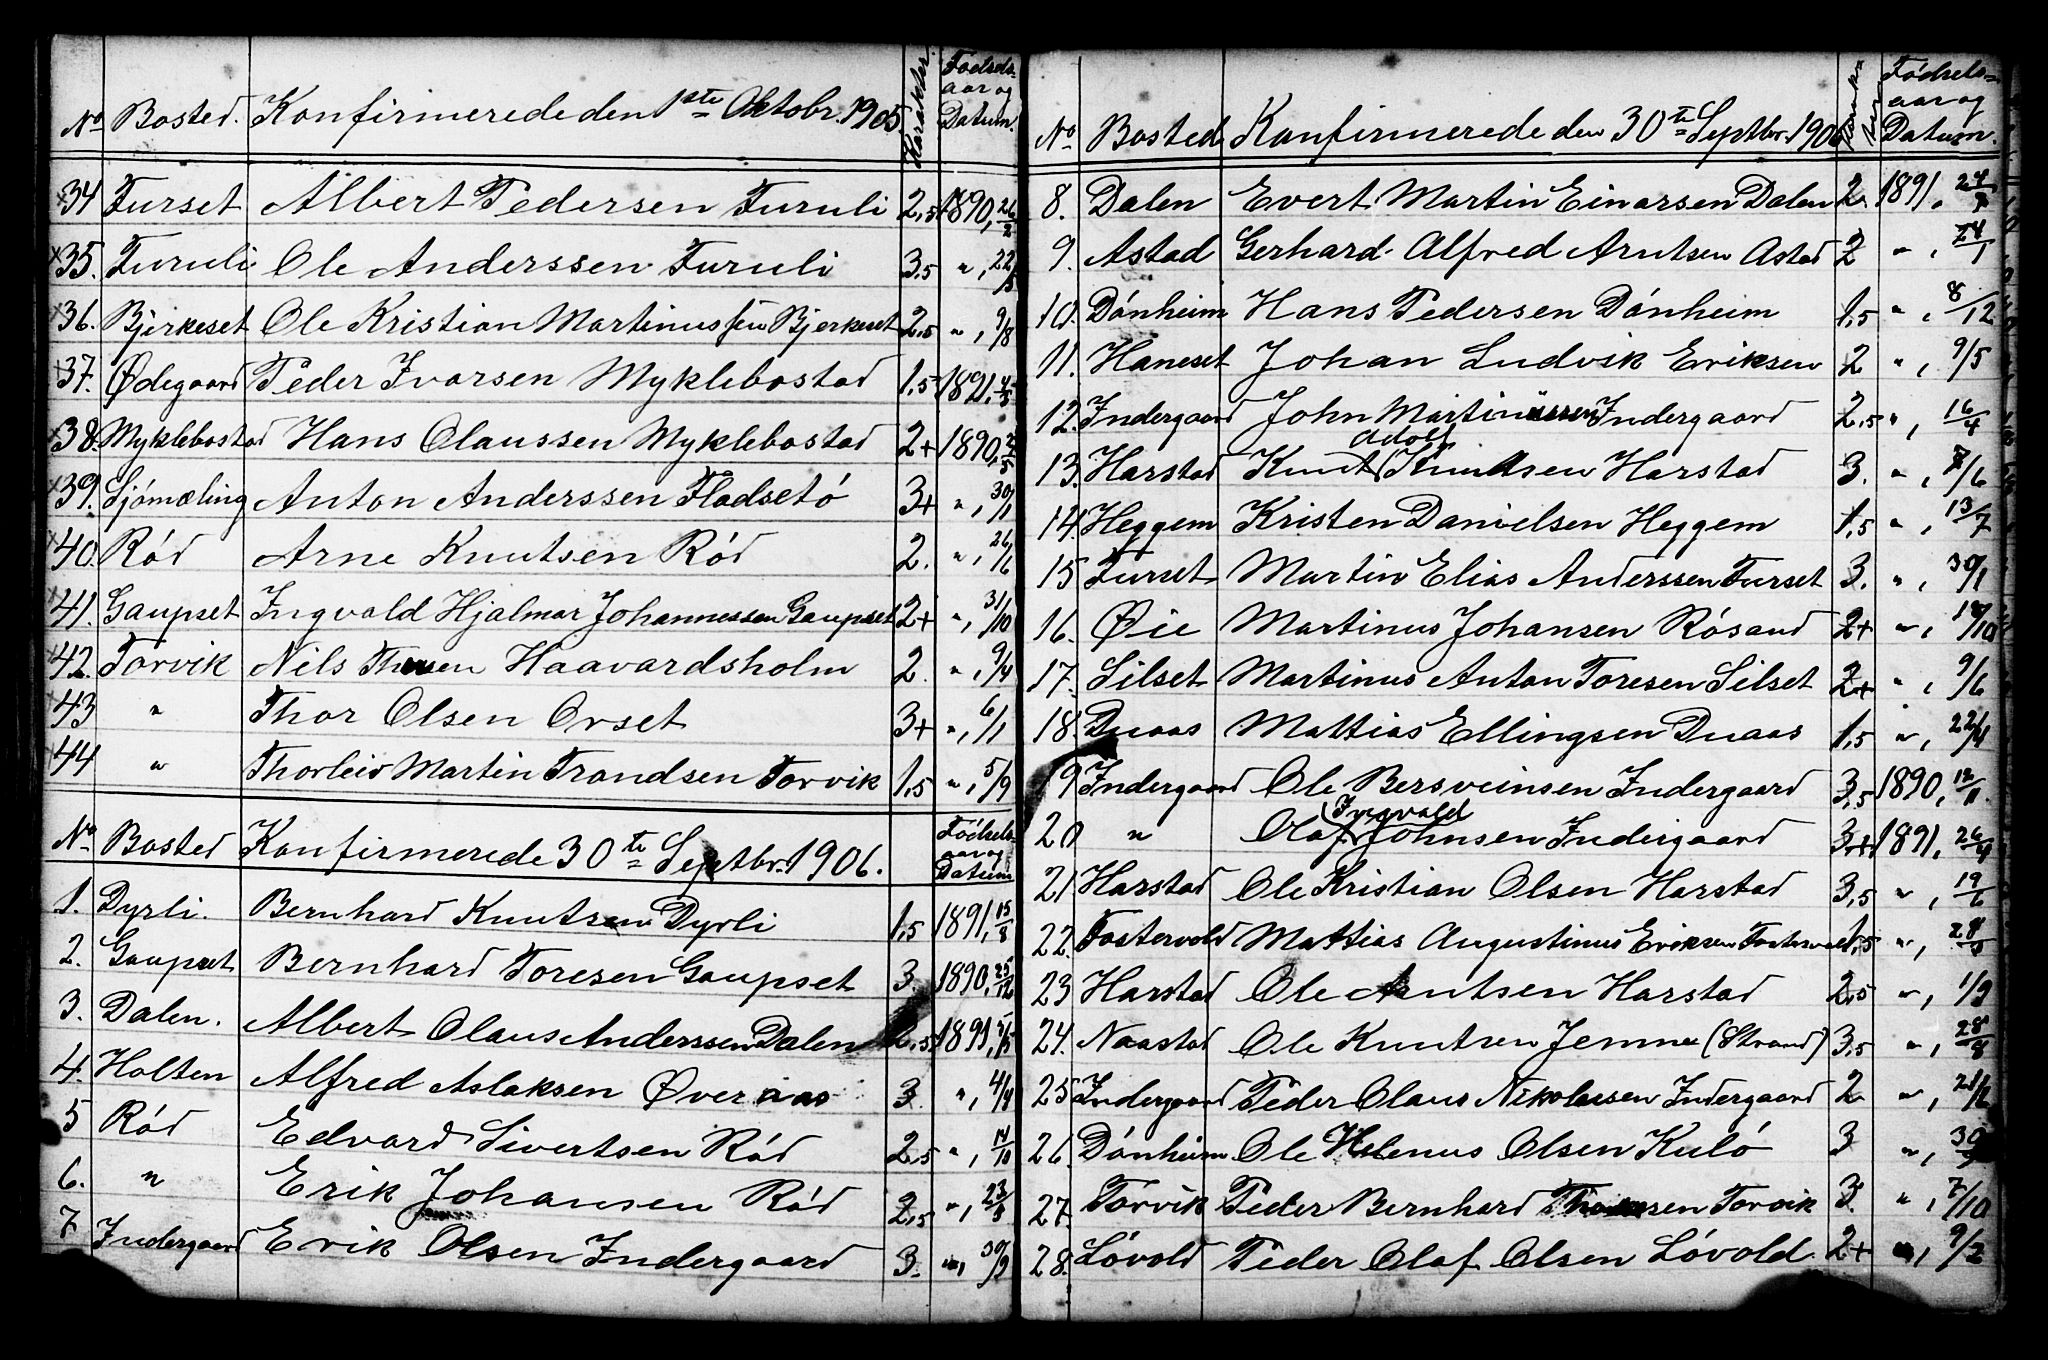 No Bosted. Konfirmerede den 1ste Oktobr. 1905 Karakter. Fødsels-aar og Datum.
34 Furset Albert Pedersen Furuli 2,5 1890, 26/2
35. Furuli Ole Anderssen Furuli 3,5 ", 22/5
36. Bjerkeset Ole Kristian Martinussen Bjerkeset 2,5 ", 9/8
37. Ødegaard Peder Ivarsen Myklebostad 1,5 1891,
38. Myklebostad Hans Olaussen Myklebostad 2+ 1890,
39. Sjómæling Anton Anderssen Fladsetó 3+ ", 30/1
40. Ród Arne Knutsen Ród 2. ", 26/6
41. Gaupset Ingvald Hjalmar Johannessen Gaupset 2+ ", 31/10
42. Torvik Nils Haavardsholm 2. ", 9/4
43 " Thor Olsen Orset 3+ ", 6/1
44 " Thorleiv Martin Trondsen Torvik 1,5 ", 5/9
No Bosted Konfirmerede 30te Septbr. 1906. Fødsels-aar og Datum
1. Dyrli. Bernhard Knutsen Dyrli 1,5 1891, 15/8
2. Gaupset Bernhard Toresen Gaupset 3. 1890, 25/12
3. Dalen. Albert Olaus Anderssen Dalen 2,5 1891,
4. Holten Alfred Aslaksen Øveraas 3. ", 4/4
5 Ród Edvard Sivertsen Ród 2,5 ", 14/10
6. " Erik Johansen Ród 2,5 ", 23/3
7 Indergaard Erik Olsen Indergaard 3. ", 30/9
No Bosted Konfirmerede den 30te Septbr. 1906 Fødsels-aar og Datum.
8. Dalen Evert Martin Einarsen Dalen 2. 1891,
9. Astad Gerhard Alfred Arntsen Astad 2 ", 24/1
10. Dónheim Hans Pedersen Dónheim 1,5 ", 8/12
11. Haneset Johan Ludvik Eriksen 2 ", 9/5
12. Indergaard John Martinussen Indergaard 2,5 ", 16/4
13. Harstad Knut Adolf Knutsen Harstad 3. ",
14. Heggem Kristen Danielsen Heggem 1,5 ", 13/7
15 Furset Martin Elias Anderssen Furset 3. ", 30/1
16. Øie Martinus Johansen Rósand 2+ ",
17. Silset Martinus Anton Toresen Silset 2+ ", 9/6
18. Duaas Mattias Ellingsen Duaas 1,5 ", 22/4
19 Indergaard Ole Bersveinsen Indergaard 3,5 1890, 12/11
20 " Olaf Ingvald Johnsen Indergaard 3+ 1891, 26/4
21 Harstad Ole Kristian Olsen Harstad 3,5 ", 19/6
22. Fostervold Mattias Augustinus Eriksen Fostervold 1,5 ", 28/5
23 Harstad Ole Arntsen Harstad 2,5 ", 1/9
24. Naastad Ole Knutsen Jemne (Strand) 3,5 ", 28/8
25 Indergaard Peder Olaus Nikolaisen Indergaard 2 ", 21/6
26. Dónheim Ole Helenus Olsen Kuló 3 ",
27. Torvik Peder Bernhard Torvik 3. ", 7/10
28. Lóvold Peder Olaf Olsen Lóvold 2+ ", 9/2